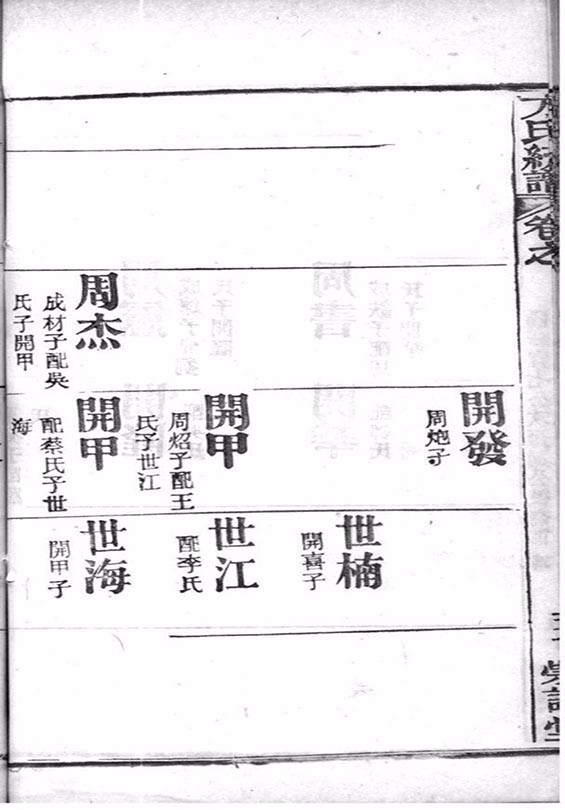 卷之
周杰
成材子配吳
氏子開甲
開發
周炮子
開甲
周炤子配王
氏子世江
開甲
配蔡氏子世
海
世楠
開喜子
世江
配李氏
世海
開甲子